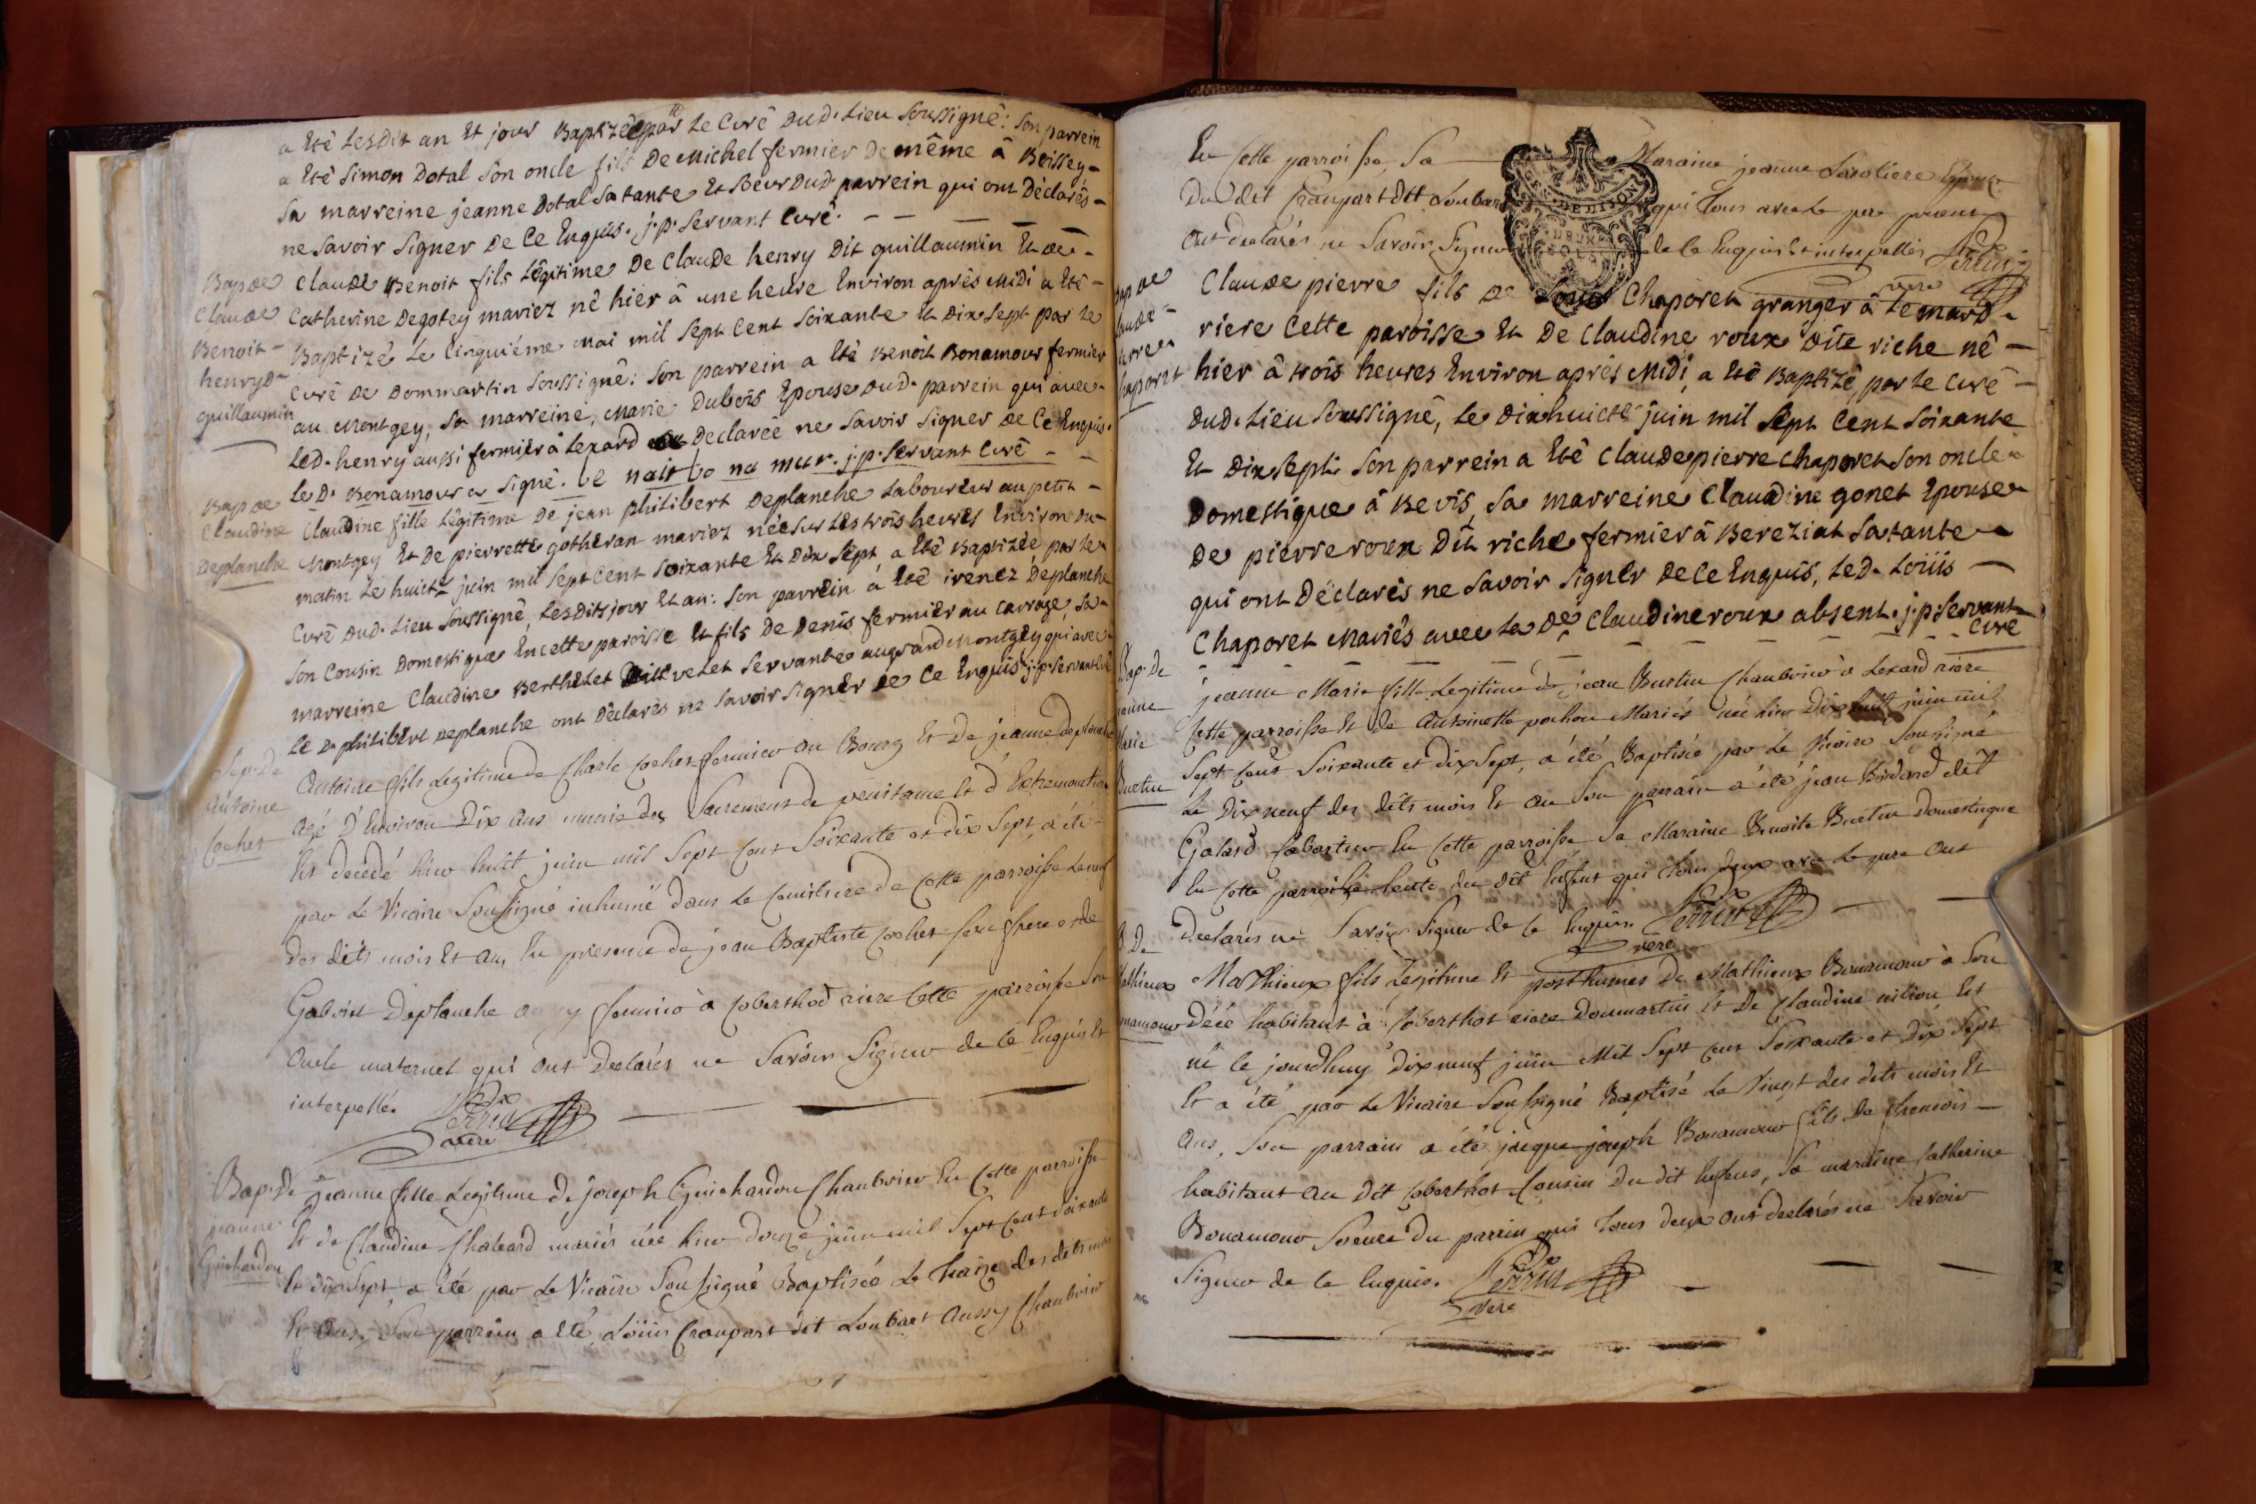 a Etê lesdit an Et jour Baptizée par le Curé dud. lieu soussigné: son parrein
a Etê simon Dotal son oncle fils De Michel fermier de même â Beissey
sa marreine jeanne Dotal sa tante et soeur dud. parrein qui ont Déclarés
ne savoir signer De Ce Enquis. j.p. servant Curé.
Bap de
Claude
Benoit
henry d
guillaumin
Claude Benoit fils légitime De Claude henry Dit guillaumin Et de
Catherine Degotey mariez né hier â une heure Environ aprês midi a Etê
Baptizé le Cinquiéme mai mil sept Cent soixante Et Dix sept par le
Curé De Dommartin soussigné: son parrein a Etê Benoit Bonamour fermier
au Montgey, sa marreine, Marie Dubois Epouse dud. parrein qui avec
led. henry aussi fermier â Lexard Declarée ne savoir signer de Ce Enquis.
le D. Benamour a signé. be nait bo na mur. j.p. servant Curé
Bap de
Claudine
Deplanche
Claudine fille légitime De jean philibert Deplanche laboureur au petit
Montgey Et De pierrette gotheran mariez née sur les trois heures Environ du
matin le huict juin mil sept Cent soixante Et Dix sept a Etê Baptizée par le
Curé dud. lieu soussigné, lesdits jour Et an: son parrein á Etê irenez Deplanche
son Cousin Domestique En cette paroisse Et fils De Denis fermier au Carroge, sa
marreine Claudine Berthelet Ditt velet servante au grand Montgey qui avec
le D. philibert Deplanche ont Déclarés ne savoir signer De Ce Enquis j.p. servant
Sep. De
Antoine
Cochet
Antoine fils Legitime de Charle Cochet fermier au Bourg Et De jeanne deplanche
agé D'Environ Dix ans munis des Sacrements de penitance Et d'Extremonction
Et decedé hier huit juin mil Sept Cent Soixante et dix Sept, a été
par Le Vicaire Soussigné inhumé dans Le Cimitiere de Cette parroisse Le neuf
des dits mois Et an, En presence de jean Baptiste Cochet son frere et de
Gabriel Deplanche aussy fermier à Coberthod riere Cette parroisse Son
Oncle maternel qui ont Declarés ne Savoir Signer de Ce Enquis Et
interpellé. Perrin vicre
Bap. De
jeanne
Guichardon
jeanne fille Legitime de joseph Guichardon Chanbrier En Cette parroisse
Et de Claudine Chateard mariés née hier douze juin mil Sept Cent Soixante
Et dix Sept, a été par Le Vicaire Soussigné Baptisée Le treize des dits mois
Et an, Son parrain a Eté Loüis Craupart dit Loubart aussy Chanbrier
En Cette parroisse, Sa Maraine jeanne Epouse
Du dit Craupart dit Loubart qui tous avec Le pere presents
ont declarés ne Savoir Signer de Ce Enquis Et interpellés Perrin vicre
Claude pierre fils De Louis Chaporet granger â
riere Cette paroisse Et De Claudine roux dite riche né
hier â trois heures Environ aprés Midi, a Etê Baptizé, par le Curé
dud. lieu soussigné, le Dixhuicte juin mil sept Cent soixante
Et Dix sept: son parrein a Etê Claude pierre Chaporet son oncle
Domestique â Bevis, sa marreine Claudine gonet Epouse
De pierre roux Dit riche fermier â Bereziat sa tante
qui ont Déclarés ne savoir signer De Ce Enquis, led. Loüis
Chaporet Mariés avec la De Claudine roux absent. j.p. servant
Curé
Bap. De
Marie
Buetin
jeanne Marie fille Legitime de jean Buetin Chanbrier à Lexard riere
Cette parroisse Et de Antoinette pochon Mariés née hier Dix huit juin mil
Sept Cent Soixante et dix Sept, a été Baptisée par Le Vicaire Soussigné
Le Dix neuf des dits mois Et an Son parrain a été jean dit
Galard Cabartier En Cette parroisse Sa Maraine Benoite Buetin Domestique
En Cette parroisse tente du dit Enfant qui tous deux avec Le pere ont
Declarés ne Savoir Signer de Ce Enquis. Perrin vicre
B. De
Mathieux
Mathieux fils Legitime Et posthumes De Mathieux Bonamour à Son
Décé habitant à Coberthot riere Dommartin Et De Claudine nition Est
né Ce jourdhuy dix neuf juin Mil Sept Cent Soixante et Dix Sept
Et a été par Le Vicaire Soussigné Baptisé Le Vingt des dits mois Et
ans, Son parrain a été jacque joseph Bonamour fils De francois
habitant au Dit Coberthot Cousin du dit Enfens, Sa maraine Catherine
Bonamour Soeure du parrin qui tous deux ont declarés ne Savoir
Signer de Ce Enquis. Perrin vicre